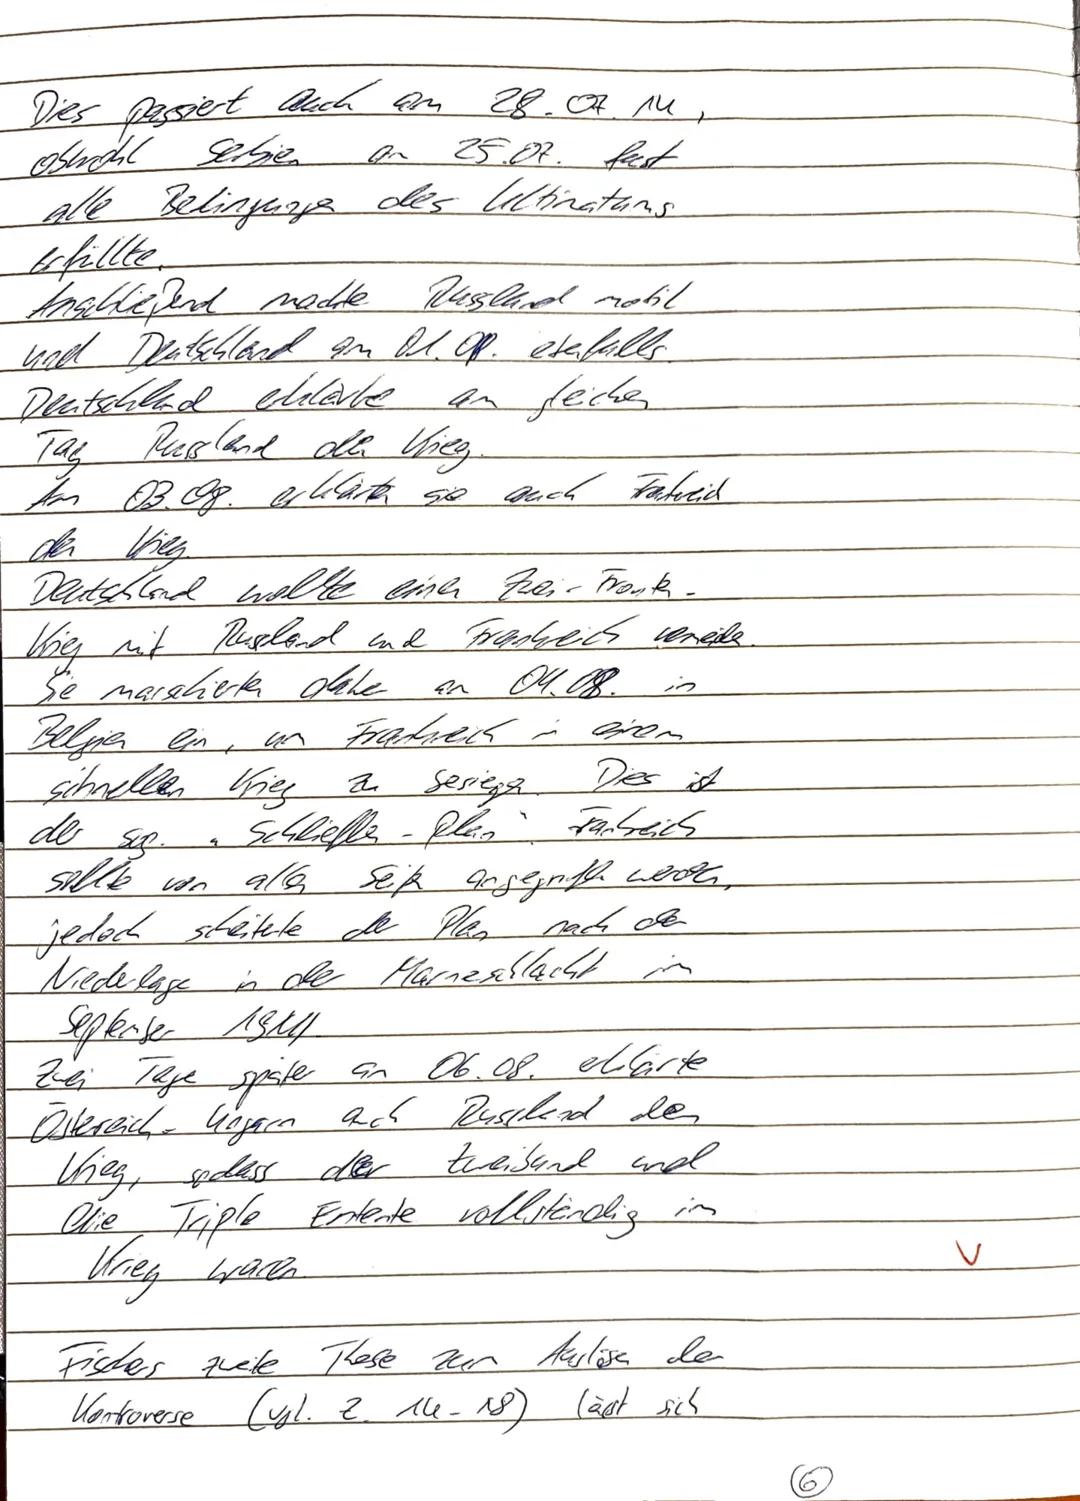 Dies passiert auch am 28.07.14,
obwohl Serbien am 25.07. fast
alle Bedingungen des Ultimatums
erfüllte.
Anschließend machte Russland mobil
und Deutschland am 01.08. ebenfalls.
Deutschland erklärte am gleichen
Tag Russland den Krieg.
Am 03.08. erklärten sie auch Frankreich
den Krieg.
Deutschland wollte einen Zwei-Fronten-
Krieg mit Russland und Frankreich vermeiden.
Sie marschierten daher am 04.08. in
Belgien ein, um Frankreich in einem
schnellen Krieg zu besiegen. Dies ist
der sog. „Schlieffen-Plan". Frankreich
sollte von allen Seiten angegriffen werden,
jedoch scheiterte der Plan nach der
Niederlage in der Marneschlacht im
September 1914.
Zwei Tage später am 06.08. erklärte
Österreich-Ungarn auch Russland den
Krieg, sodass der Zweibund und
die Triple Entente vollständig im
Krieg waren.
V
Fischers zweite These zum Auslösen der
Kontroverse (vgl. Z. 14-18) lässt sich
6